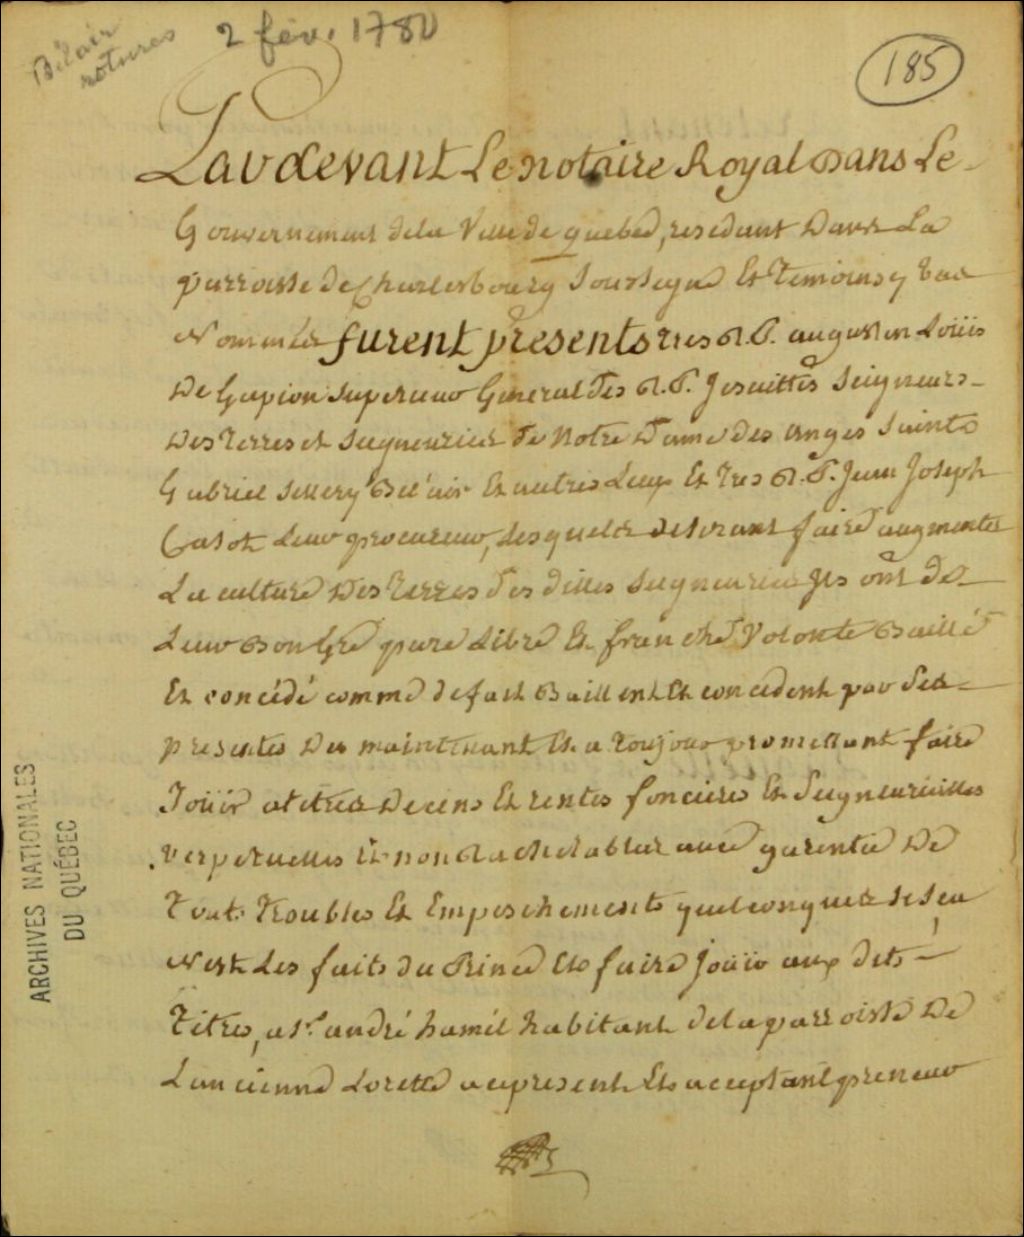 Bélair
rotures
2 fév. 1780
185
Pardevant Le notaire Royal Dans Le
Gouvernement dela Ville de quebec, residant Dans La
parroisse de Charlesbourg Soussigné Et Temoins y bas
Nommés furent presents tres R.P. augustin Loüis
De Glapion Superieur General des R.P. Jesuittes Seigneurs
Des Terres et Seigneuries de Notre Dame des anges Sainte
Gabriel Sillery Bel'air Et autres Lieux Et Tres R.P. Jean Joseph
Casot Leur procureur, Lesquels desirant faire augmenter
La culture Des Terres des dittes Seigneuries Ils ont de
Leur Bon Gré pure Libre Et franche Volonté Baillé
Et concédé comme de fait Baillent Et concedent par Ses
presentes Des maintenant Et a toujour promettant faire
Joüir atitres De cens Et rentes foncieres Et Seigneurialles
perpetuelles Et non Rachetables avec garentie De
Tout Troubles Et Empeschements quelconques Si Sea
N'est Les faits du Prince Et faire Joüir aux dits
Titres, a Sr. andré hamel habitant dela parroisse De
L'ancienne Lorette a ce present Et acceptant preneur
ARCHIVES NATIONALES
DU QUÉBEC